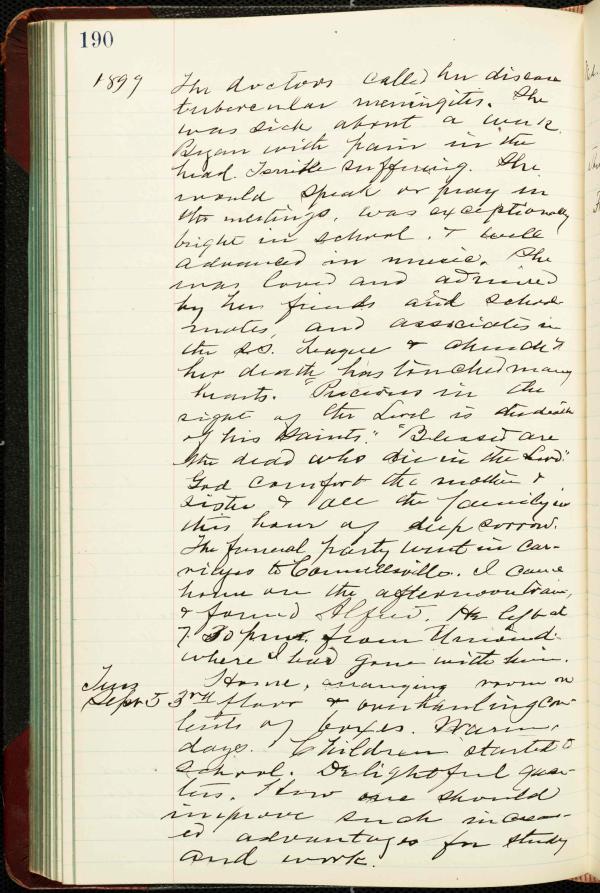 190
1899 The doctors called her disease
tubercular meningitis. She
was sick about a week.
Began with pain in the
head. Terrible suffering. She
would speak or pray in
the meetings, was exceptionally
bright in school, & well
advanced in music. She
was loved and admired
by her friends and school-
mates, and associates in
the S.S. League & church &
her death has touched many
hearts. "Precious in the
sight of the Lord is the death
of his Saints." "Blessed are
the dead who die in the Lord."
God comfort the mother &
sister & all the family in
this hour of deep sorrow.
The funeral party went in car-
riages to Connellsville. I came
home on the afternoon train,
& found Alfred. He left at
7.30 p.m. from Union
where I had gone with him.
Tues Home, arranging room on
Sept 5 3rd floor & overhauling con-
tents of boxes. Warm
days. Children started to
School. Delightful quar-
ters. How one should
improve such increas-
ed advantages for study
and work.